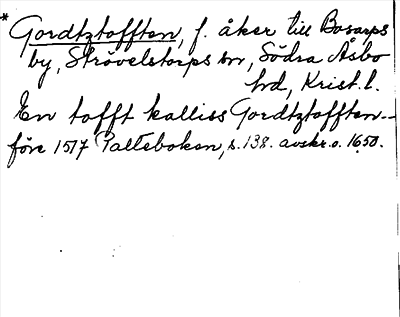 * Gordtztofften, f. åker till Bosarps
by, Strövelstorps sn, Södra Åsbo
hd, Krist. l.
En tofft kalliss Gordtztofften--
före 1517 Palteboken, s. 138. avskr. o. 1650.